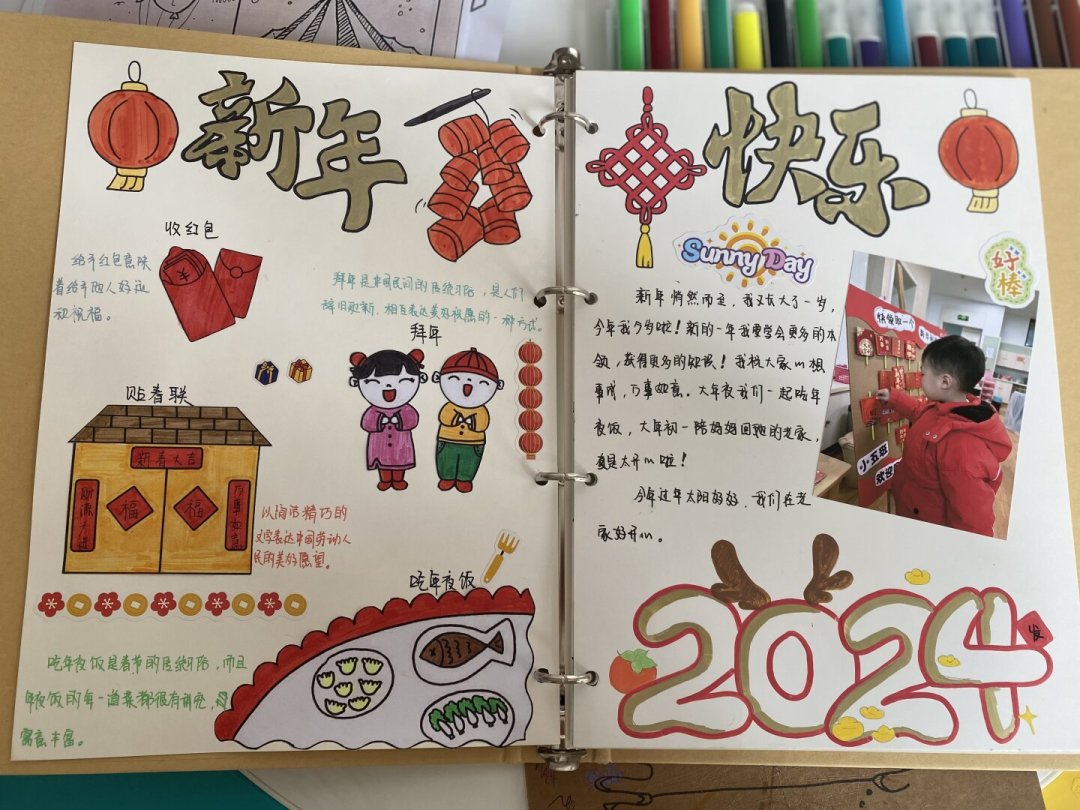 新年
收红包
给予红包意味
着给予他人好运
和祝福。
拜年是中国民间的传统习俗，是人们
辞旧迎新、相互表达美好祝愿的一种方式。
拜年
贴春联
新春大吉
福
福
万事如意
以简洁精巧的
文字表达中国劳动人
民的美好愿望。
吃年夜饭
吃年夜饭是春节的传统习俗，而且
年夜饭的每一道菜都很有讲究，
寓意丰富。
快乐
Sunny Day
好棒
新年悄然而至，我又长大了一岁，
今年我夕岁啦！新的一年我要学会更多的本
领，获得更多的知识！我祝大家心想
事成，万事如意。大年夜我们一起吃年
夜饭，大年初一陪妈妈回她的老家，
真是太开心啦！
今年过年太阳好好，我们在老
家好开心。
快领取一个
小五班
欢迎
2024
发